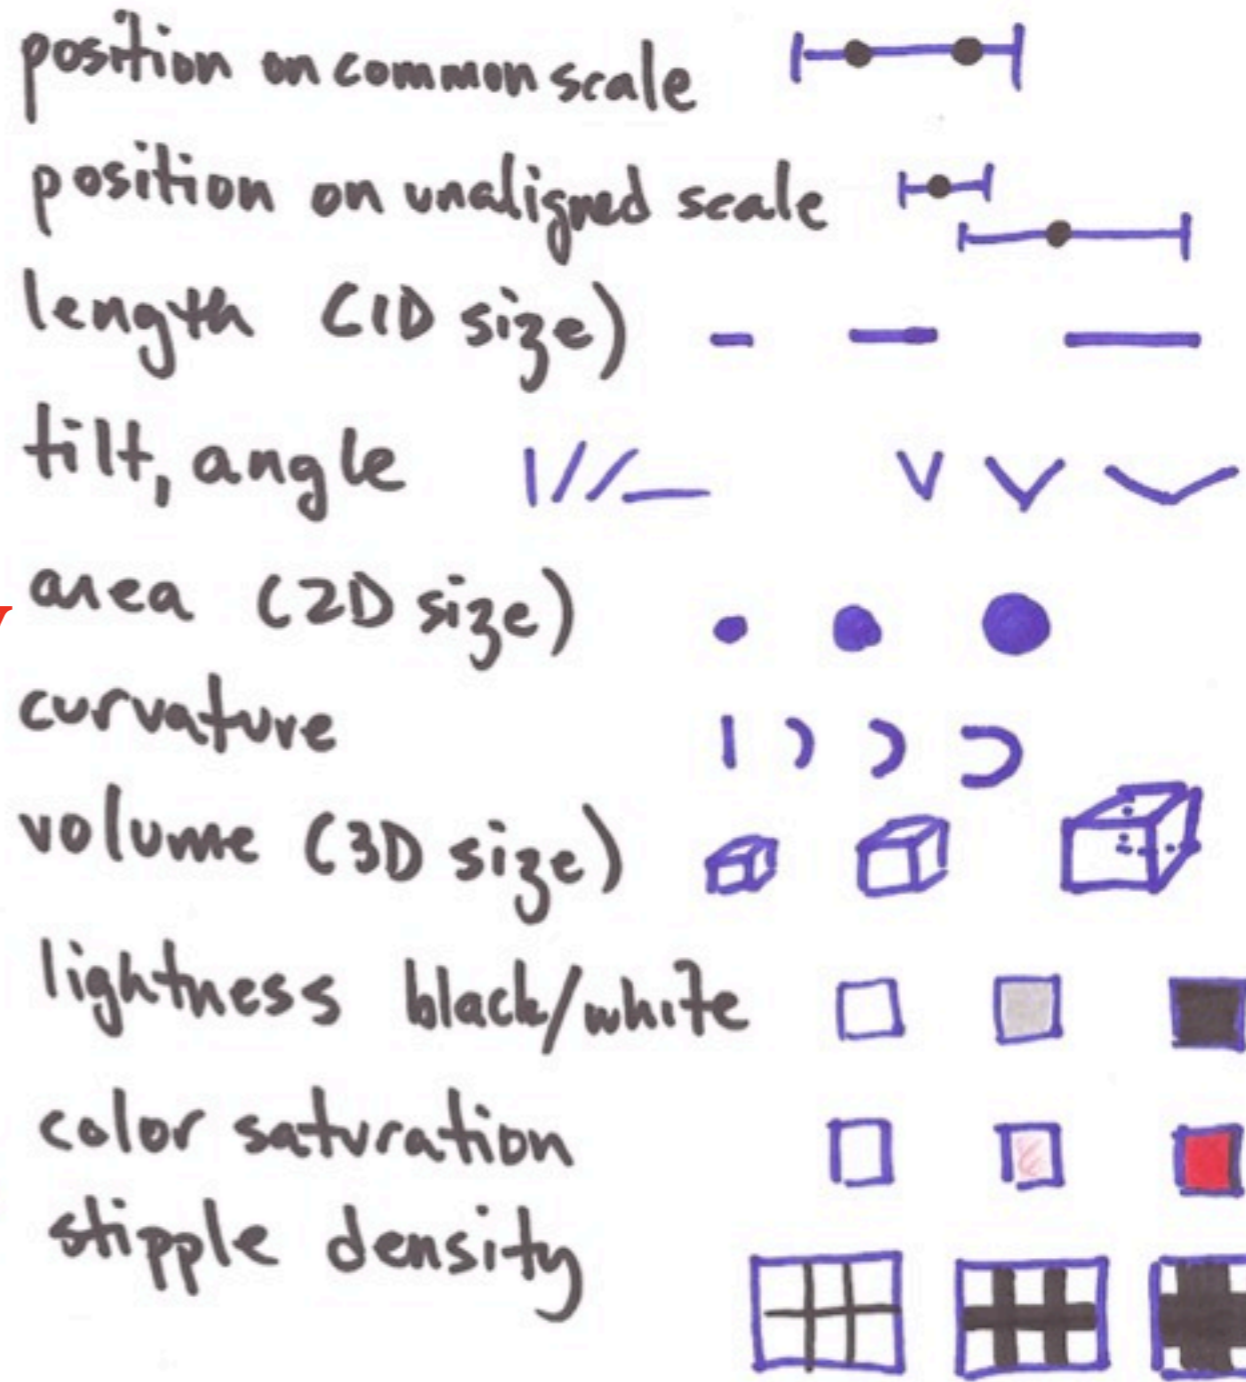 position on common scale
position on unaligned scale
length (1D size)
tilt, angle
area (2D size)
curvature
volume (3D size)
lightness black/white
color saturation
stipple density